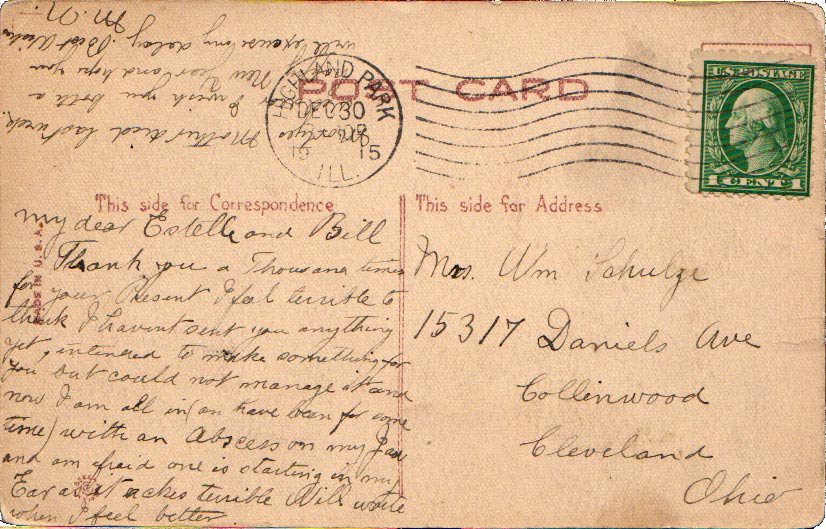 POST CARD
HIGHLAND PARK
DEC 30
1915
ILL.
U.S. POSTAGE
1 CENT 1
This side for Correspondence
This side for Address
MADE IN U.S.A.
My dear Estelle and Bill
Thank you a Thousand times
for your Present I feel terrible to
think I havent sent you anything
yet, intended to make something for
you but could not manage it and
now I am all in (an have been for some
time) with an Abscess on my Jaw
and am fraid one is starting in my
Ear it akes terrible Will write
when I feel better.
Mother died last week.
I wish you both a
New Year and hope you
will excuse my delay. Best Wishes
M. N.
Mrs. Wm Schulze
15317 Daniels Ave
Collinwood
Cleveland
Ohio